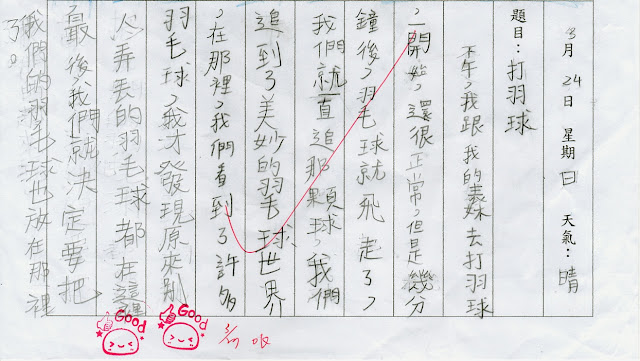 3月24日 星期日 天氣：晴
題目：打羽球
下午，我跟我的表妹去打羽球
，一開始，還很正常，但是幾分
鐘後，羽毛球就飛起了，
我們就一直追那顆球，我們
追到了美妙的羽毛球世界
，在那裡，我們看到了許多
羽毛球，我才發現原來別
人弄丟的羽毛球都在這裡
最後，我們就決定要把
我們的羽毛球也放在那裡
了。
Good
Good